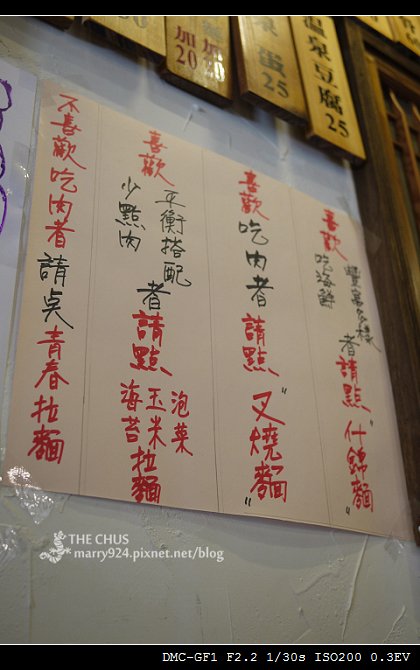 加
20
加
20
泉蛋
25
溫泉豆腐
25
喜歡吃海鮮豐富多樣者請點"什錦麵"
喜歡吃肉者請點"叉燒麵"
喜歡少點肉平衡搭配者請點海苔玉米泡菜拉麵
不喜歡吃肉者請点青春拉麵
THE CHUS
marry924.pixnet.net/blog
DMC-GF1 F2.2 1/30s ISO200 0.3EV